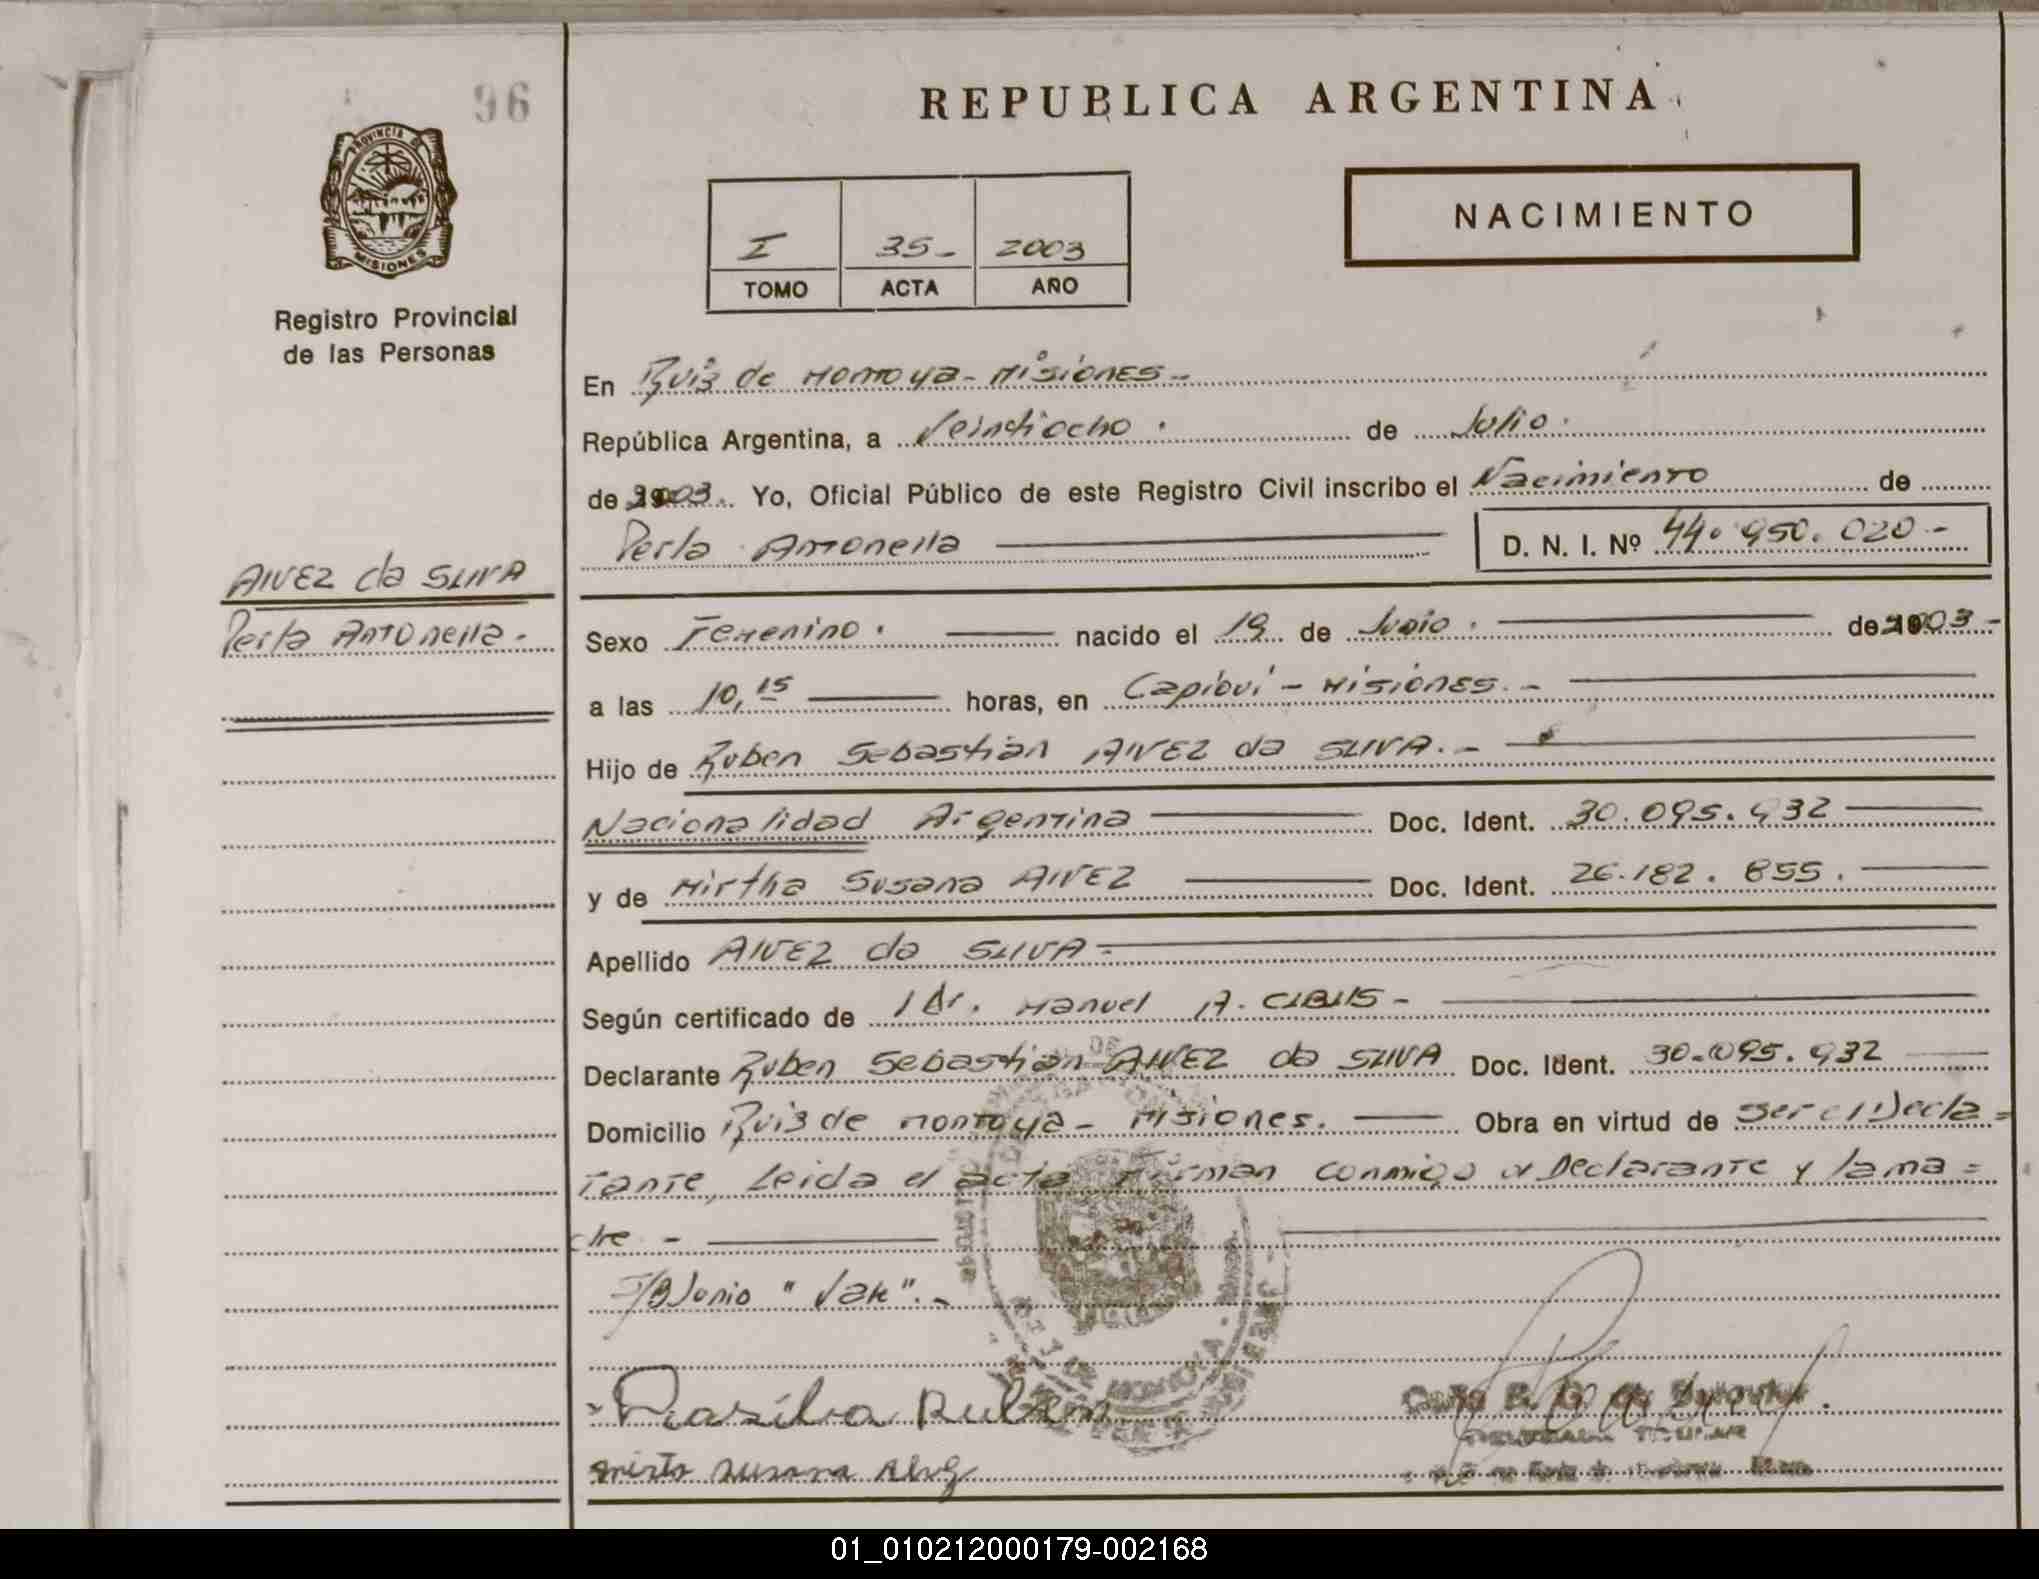 96
REPUBLICA ARGENTINA
PROVINCIA DE
MISIONES
NACIMIENTO
I 35- 2003
TOMO ACTA AÑO
Registro Provincial
de las Personas
En Ruiz de Montoya - Misiones -
República Argentina, a Veintiocho . de Julio .
de 2003. Yo, Oficial Público de este Registro Civil inscribo el Nacimiento de
Perla Antonella D. N. I. Nº 44.950.020 -
ALVEZ da SILVA
Perla Antonella -
Sexo Femenino . nacido el 19 de Junio . de 2003 -
a las 10,15 horas, en Capioví - Misiones . -
Hijo de Ruben Sebastián ALVEZ da SILVA . -
Nacionalidad Argentina Doc. Ident. 30.095.932
y de Mirtha Susana ALVEZ Doc. Ident. 26.182.855 .
Apellido ALVEZ da SILVA -
Según certificado de / Dr. Manuel A. CIBILS -
Declarante Ruben Sebastián ALVEZ da SILVA Doc. Ident. 30.095.932
Domicilio Ruiz de Montoya - Misiones . Obra en virtud de ser el Decla=
rante, Leida el acta Firman conmigo el Declarante y la ma=
dre -
Junio "Vale" . -
Ruben
Susana
TITULAR
01_010212000179-002168